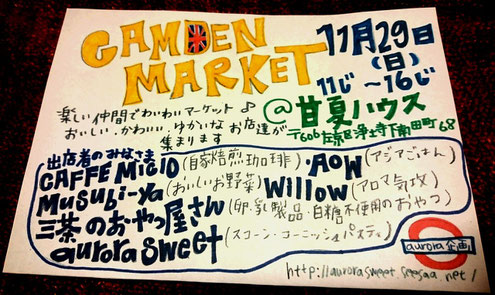 CAMDEN
MARKET
11月29日
(日)
11じ～16じ
@甘夏ハウス
〒606 左京区浄土寺下南田町68
楽しい仲間でわいわいマーケット♪
おいしい、かわいい、ゆかいな お店達が
集まります
出店者のみなさま
CAFFE MICIO (自家焙煎珈琲)
AOW (アジアごはん)
Musubi-ya (おいしいお野菜)
Willow (アロマ気功)
三茶のおやつ屋さん (卵・乳製品・白糖不使用のおやつ)
aurora sweet (スコーン・コーニッシュパスティ)
aurora企画
http://aurorasweet.seesaa.net/